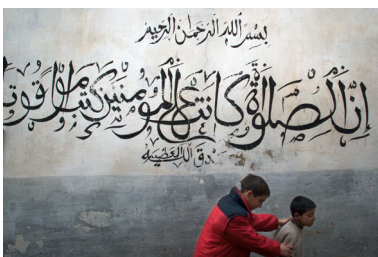 بسم الله الرحمن الرحيم
ان الصلوة كانت على المؤمنين كتبا موقوتا
صدق الله العظيم